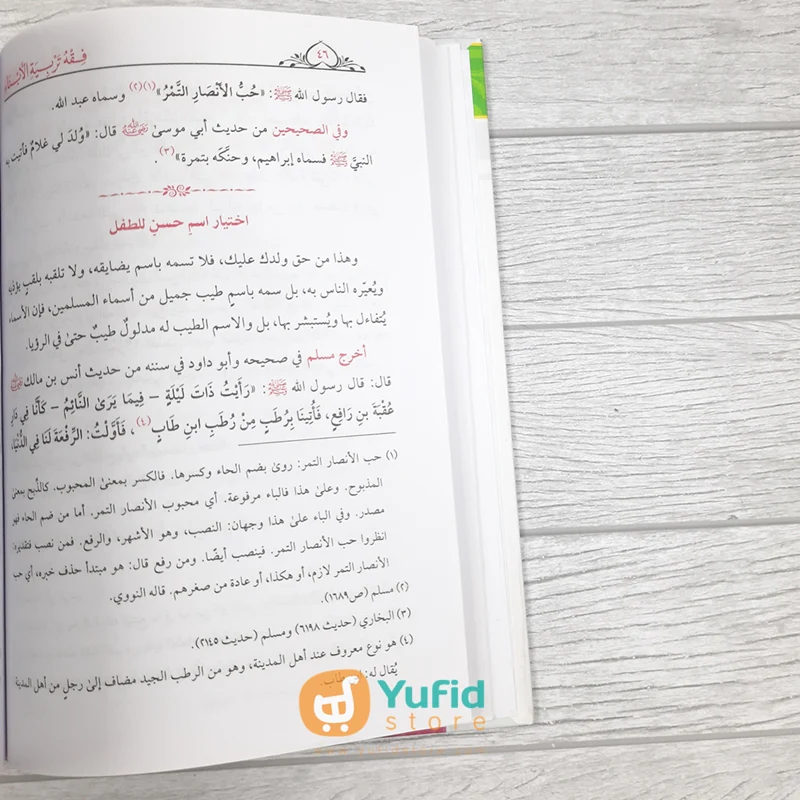 ٤٦
فِقْهُ تَرْبِيَةِ الأَبْنَاءِ
فقال رسول الله ﷺ: «حُبُّ الأَنْصَارِ التَّمْرُ»(١)(٢) وسماه عبد الله.
وفي الصحيحين من حديث أبي موسىٰ رضي الله عنه قال: «وُلدَ لي غلامٌ فأتيت به
النبيَّ ﷺ فسماه إبراهيم، وحنَّكَه بتمرة»(٣).
اختيار اسم حسنٍ للطفل
وهذا من حق ولدك عليك، فلا تسمه باسم يضايقه، ولا تلقبه بلقبٍ يؤذيه
ويُعيّره الناس به، بل سمه باسمٍ طيب جميل من أسماء المسلمين، فإن الأسماء
يُتفاءل بها ويُستبشر بها، بل والاسم الطيب له مدلولٌ طيبٌ حتىٰ في الرؤيا.
أخرج مسلم في صحيحه وأبو داود في سننه من حديث أنس بن مالك رضي الله عنه
قال: قال رسول الله ﷺ: «رَأَيْتُ ذَاتَ لَيْلَةٍ – فِيمَا يَرَىٰ النَّائِمُ – كَأَنَّا فِي دَارِ
عُقْبَةَ بنِ رَافِعٍ، فَأُتِينَا بِرُطَبٍ مِنْ رُطَبِ ابنِ طَابٍ(٤)، فَأَوَّلْتُ: الرِّفْعَةَ لَنَا فِي الدُّنْيَا،
(١) حب الأنصار التمر: روىٰ بضم الحاء وكسرها. فالكسر بمعنىٰ المحبوب. كالذِّبح بمعنىٰ
المذبوح. وعلىٰ هذا فالباء مرفوعة. أي محبوب الأنصار التمر. أما من ضم الحاء فهو
مصدر. وفي الباء علىٰ هذا وجهان: النصب، وهو الأشهر، والرفع. فمن نصب فتقديره:
انظروا حب الأنصار التمر. فينصب أيضًا. ومن رفع قال: هو مبتدأ حذف خبره، أي حب
الأنصار التمر لازم، أو هكذا، أو عادة من صغرهم. قاله النووي.
(٢) مسلم (ص١٦٨٩).
(٣) البخاري (حديث ٦١٩٨) ومسلم (حديث ٢١٤٥).
(٤) هو نوع معروف عند أهل المدينة، وهو من الرطب الجيد مضاف إلىٰ رجلٍ من أهل المدينة
يُقال له:
Yufid
store